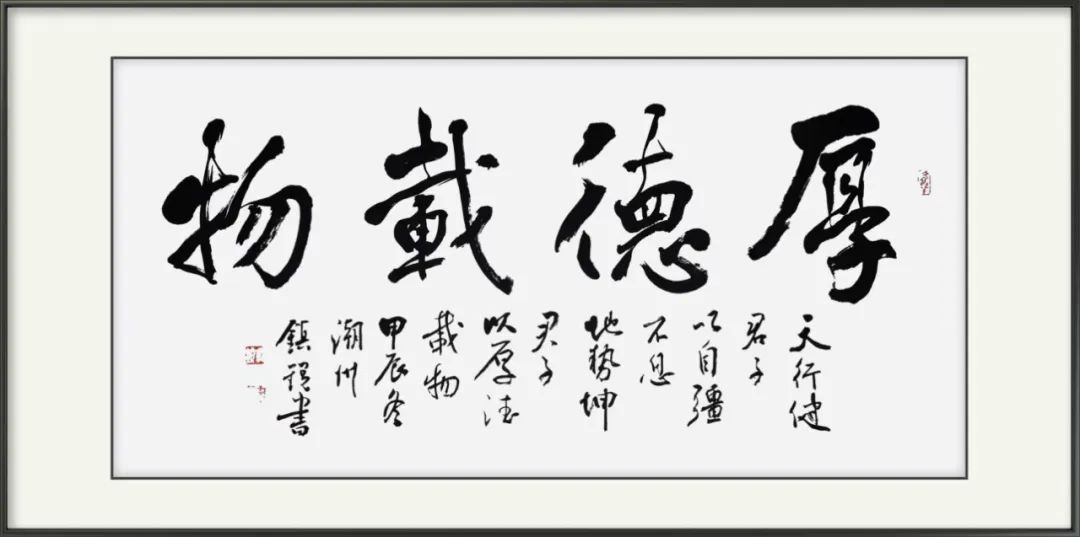 厚德載物
天行健
君子
以自彊
不息
地势坤
君子
以厚德
載物
甲辰冬
潮州
鎮
書